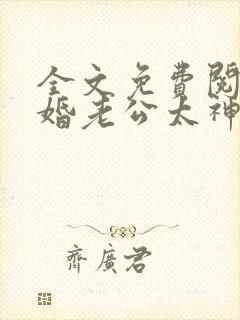 全文免費閱
婚老公太神
齊廣君